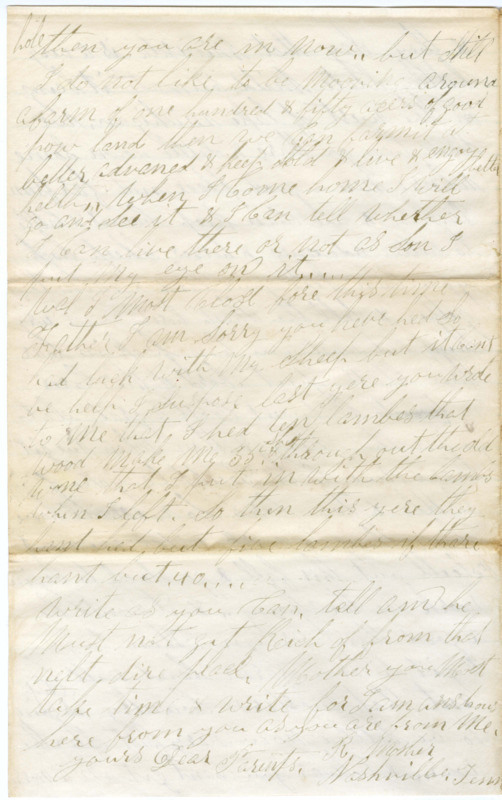 hole
then you are in now.. but still
I do not like to be mooving around
a farm of one hundred & fifty acers of good
plow land then we can farm it
better advanced & keep old & live & enjoy
better
when I come home I will
go and see it & I can tell whether
I can live there or not as son I
put my eye on it....
Well I must close fore this time
Father I am sorry you have hed so
bad luck with my sheep but it cant
be help I supose last yere you wrode
to me that I hed ten lambes that
wood make me 35 through out the old
one that I put in with the lambs
when I left. So then this yere they
hant hed but five lambes if there
hant but 40....
write as you can tell
must not get from that
next dire Mother you must
take time & write for I am anshous
here from you as you are from me.
yours Dear Parents. R. Mosher
Nashville Tenn